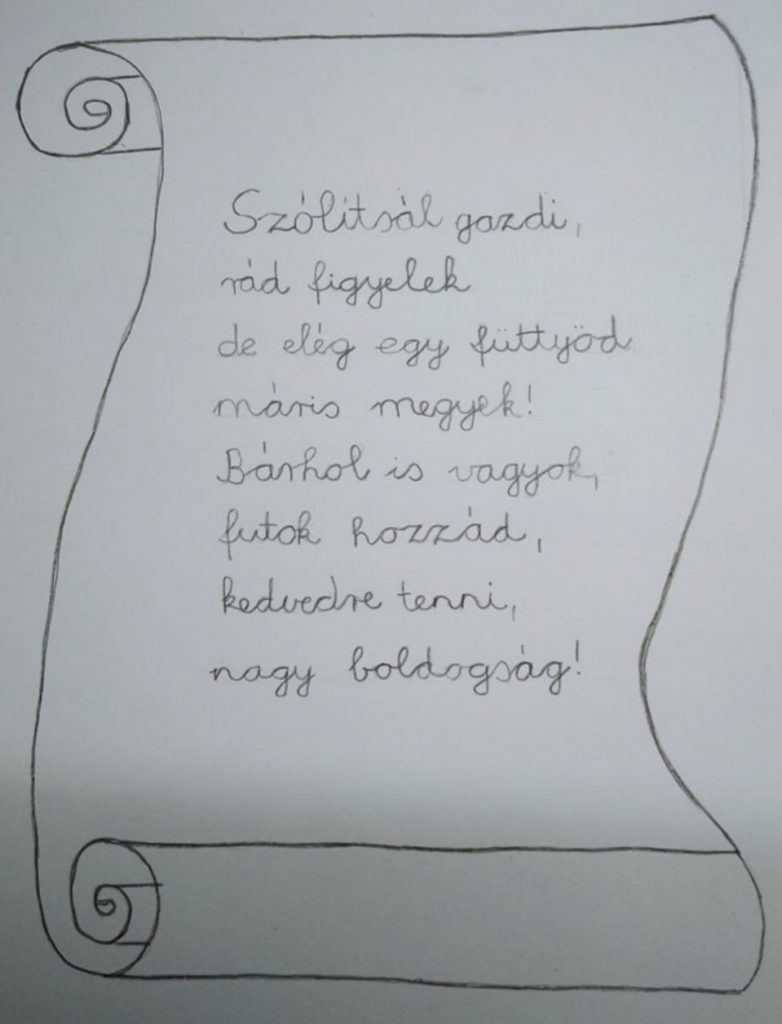 Szólítsál gazdi,
rád figyelek
de elég egy füttyöd
máris megyek!
Bárhol is vagyok,
futok hozzád,
kedvedre tenni,
nagy boldogság!